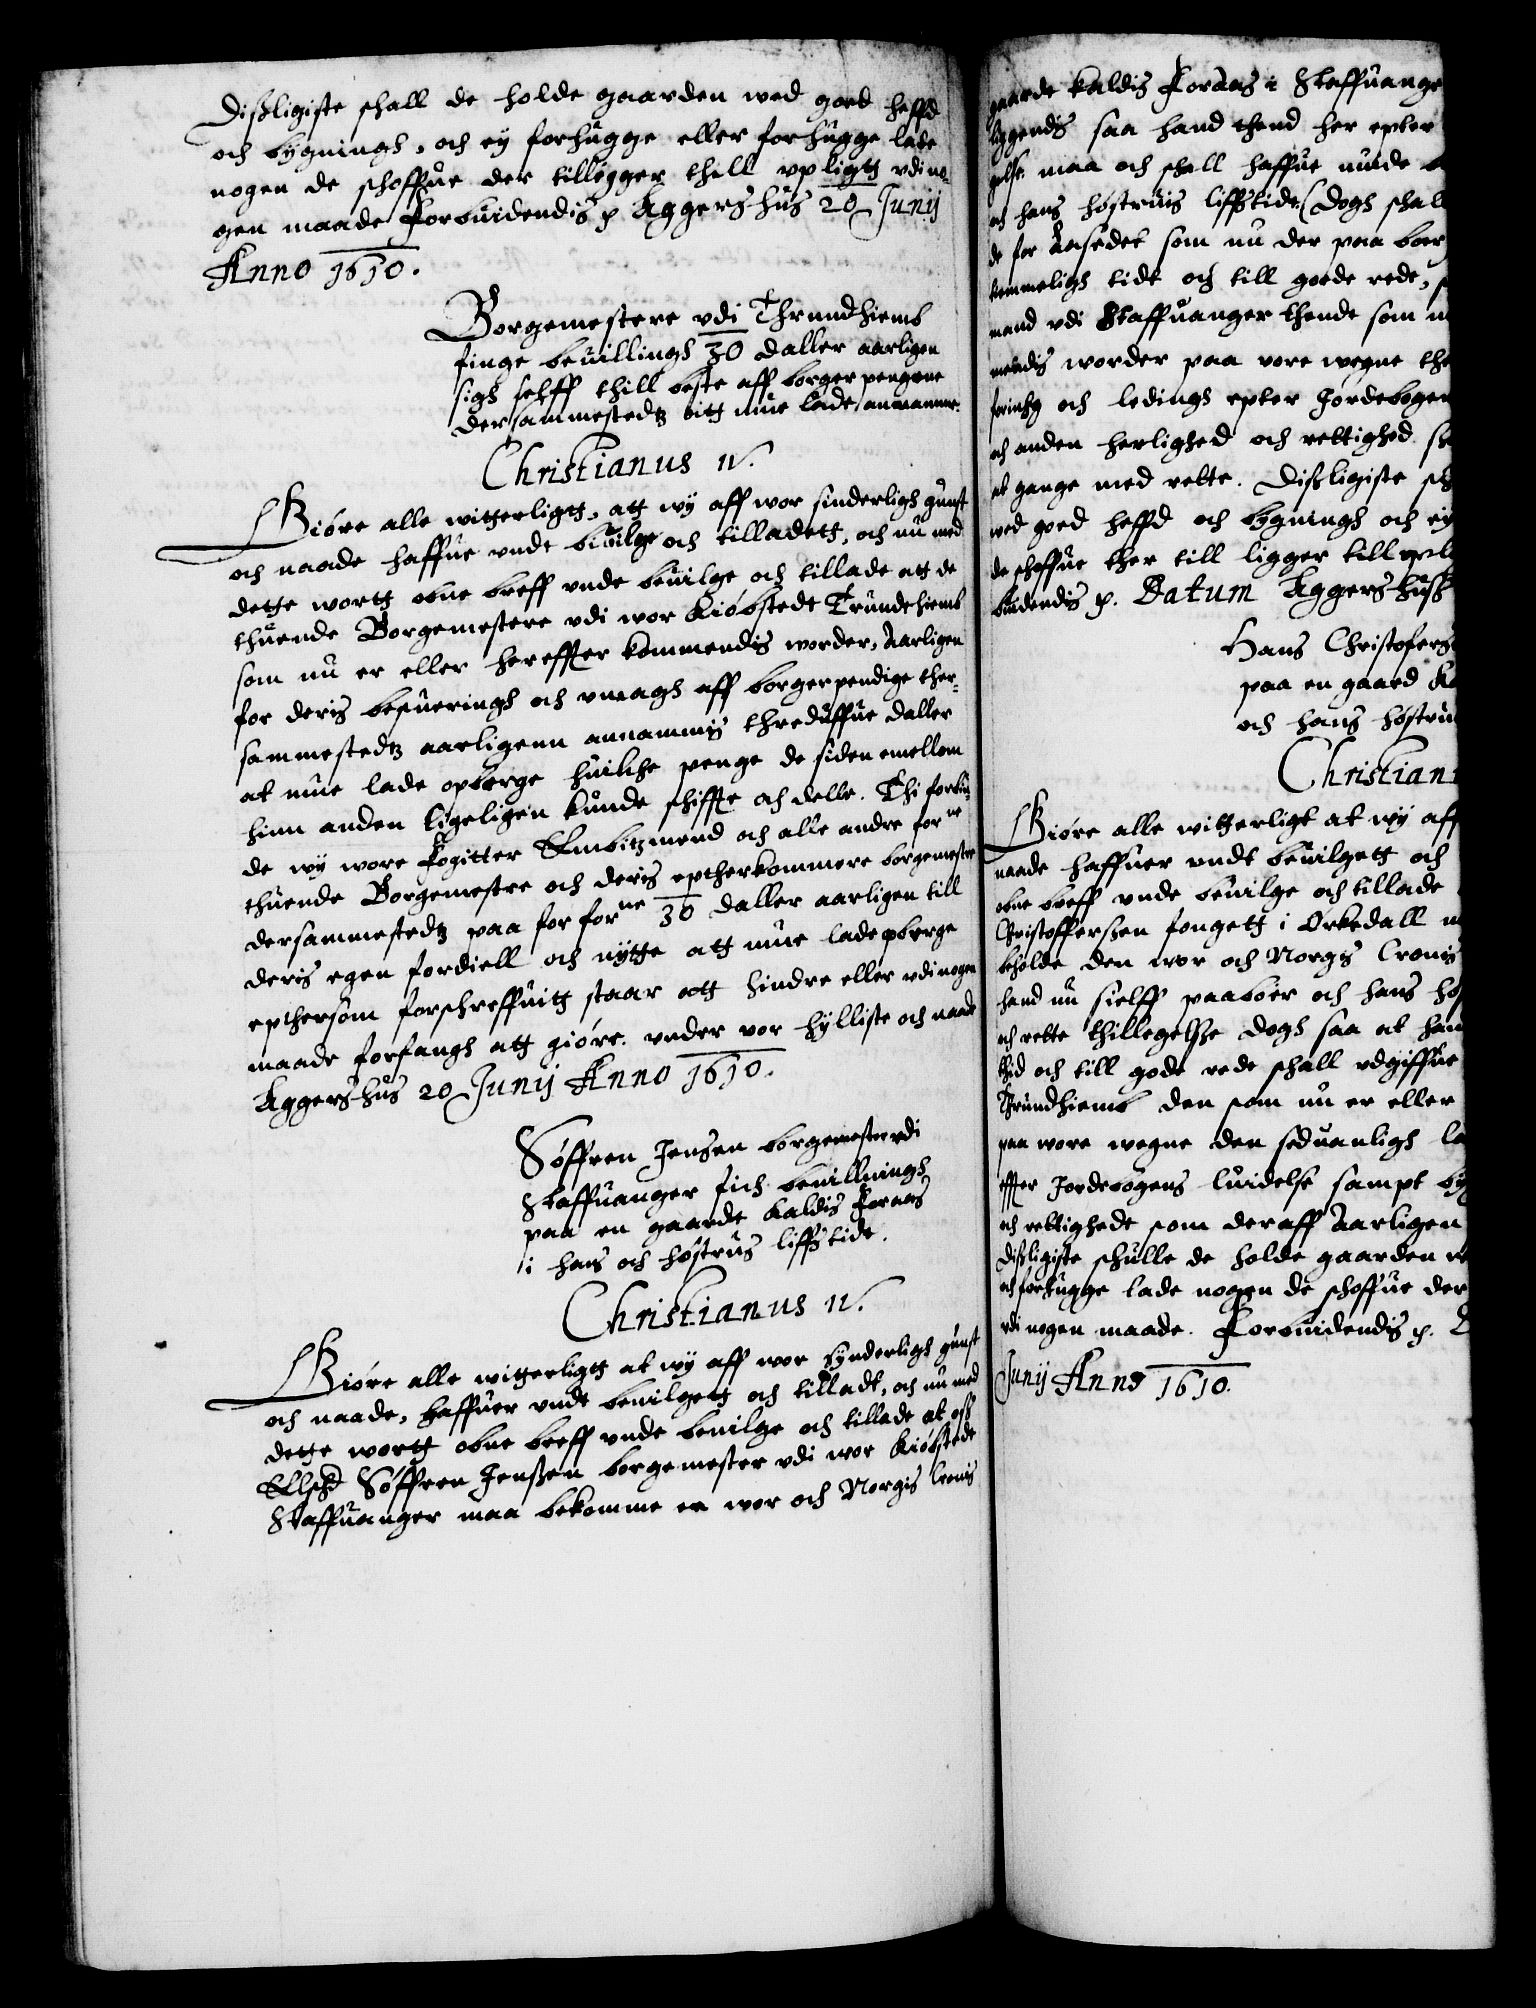 Dißligiste schall de holde gaarden wed goed heffd
och bygningh, och ey forhugge eller forhugge lade
nogen de schoffue der tilligger thill vpligth vdi no-
gen maade Forbuidendis p Aggershus 20 Junij
Anno 1610.
Borgemestere vdi Thrundhiemb
finge beuillingh 30 daller aarligen
sigh selff thill beste aff borger pengene
dersammestedtz att mue lade annamme.
Christianus IV.
Giøre alle witterligtt, att wy aff wor sinderligh gunst
och naade haffue vndt biuilge och tilladett, och nu med
dette wortt obne breff vnde beuilge och tillade att de
thuende Borgemestere vdi wor Kiøbstedt Trundthiemb
som nu er eller hereffter kommendis worder, Aarligen
for deris besueringh och vmagh aff borgerpendige ther-
sammestedtz aarligenn annammis threduffue daller
at mue lade opberge huilche penge de siden emellom
hinn anden ligeligen kunde schiffte och delle. Thi forbiu-
de wy wore Fogitter Embitzmend och alle andre forne
thuende Borgemestre och deris eptherkommere borgemestre
dersammestedtz paa for forne 30 daller aarligen till
deris egen fordiell och nytte att mue lade opberge
epthersom forschreffuitt staar att hindre eller vdi nogen
maade forfangh att giøre. vnder vor hylliste och naade
Aggershus 20 Junij Anno 1610.
Søffren Jensen borgemester vdi
Staffuanger fich beuillningh
paa en gaarde kaldis Foraas
i hans och høstrus liffs tide.
Christianus IV.
Giøre alle witterligtt at wy aff wor synderligh gunst
och naade, haffuer vndt beuilgett och tilladt, och nu med
dette wortt obne breff vnde beuilge och tillade at oß
Elschd Søffren Jenßen borgemester vdi wor Kiøbstede
Staffuanger maa bekomme en wor och Norgis Cronis
gaarde kaldis Foraas i Staffuange
liggendis saa hand thend her epter
maa och schall haffue nuide
och hans høstruis liffs tide (dogh schal
de for Aasedet som nu der paa boer
temmeligh tide och till goede rede,
mand vdi Staffuanger thende som
mendis worder paa vore wegne the
och ledingh epter Jordebogen
och anden herlighed och rettighed
at gange med rette. Dißligiste sch
wed goed heffd och bygningh och ey
de schoffue ther till ligger till
budendis p. Datum Aggershuß
Hans Christofers
paa en gaard
och hans høstru
Christian
Giøre alle witterligt at wy aff
naade haffuer vndt beuilgett och
obne breff vnde beuilge och tillade
Christofferßen fongett i Orkedall
beholde den wor och Norgis Cronis
hand nu sielff paaboer och hans
och rette thillegelsze dogh saa at han
thid och till gode rede schall vdgiffue
Trundhiemb den som nu er eller
paa wore wegne den seduanligh
effter Jordebogens luidelse sampt
och rettighede som deraff Aarligen
dißligiste schulle de holde gaarden
och forhugge lade nogen de schoffue der
vdi nogen maade. Forbuidendis p.
Junij Anno 1610.